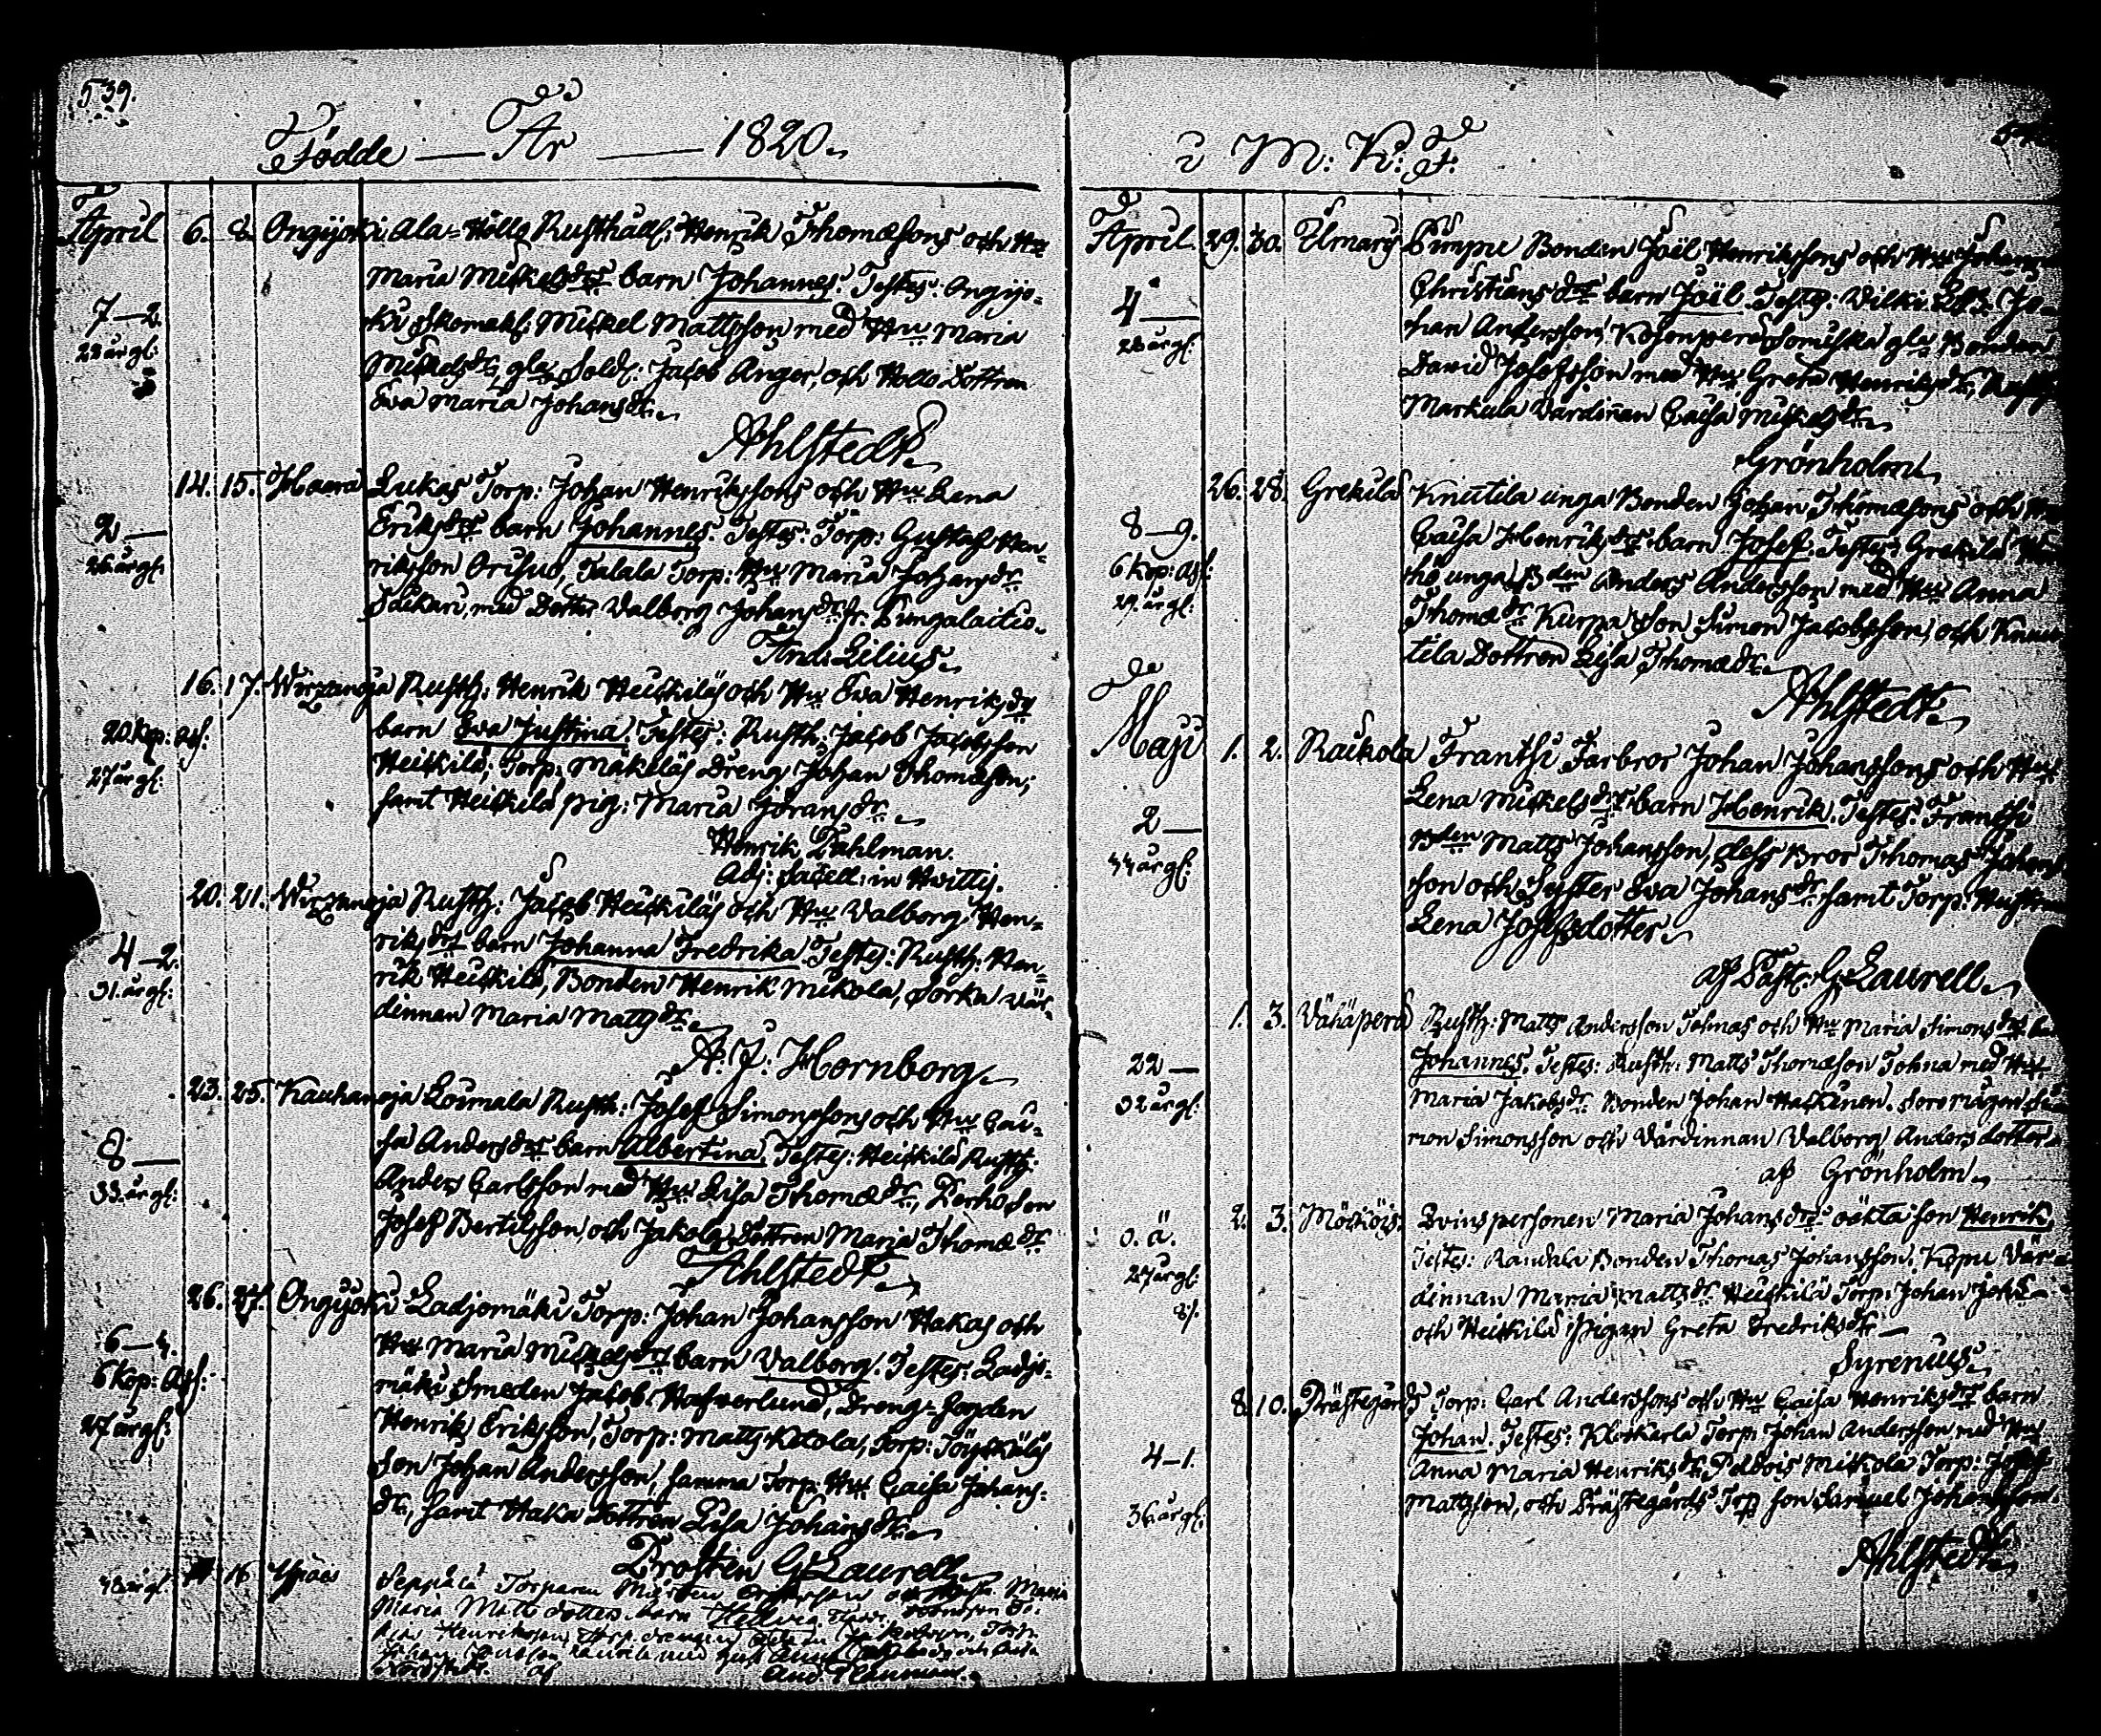 539.
Födde — År — 1820.
April 6. 8. Ongijoki Ala-Hollo Rusthåll: Henrik Thomæsons och Hu
Maria Mickelsdrs barn Johannes. Testes: Ongijo-
7—2. ki Skomak: Mickel Mattsson med Hu Maria
22 år gl: Mickelsdr, gla Sold: Jacob Anger, och Hollo Dottren
Eva Maria Johansdr.
Ahlstedt.
14. 15. Haara Lukas Torp: Johan Henrikssons och Hu Lena
2— Eriksdrs barn Johannes. Testes: Torp: Gustaf Hen-
26 år gl: riksson Orisuo, Talala Torp: Hu Maria Johansdr
Säkari, med Dotter Valborg Johansdr fr. Pungalaitio.
And: Lilius.
16. 17. Wirzanoja Rusth: Henrik Heickiläs och Hu Eva Henriksdrs
20 kop: ass: barn Eva Justina. Testes: Rusth: Jacob Jacobsson
27 år gl: Heickilä, Torp: Mäkeläs Dreng Johan Thomæson,
samt Heickilä pig: Maria Jöransdr.
Henrik Dahlman.
Adj: Sacell: in Hvittis.
20. 21. Wirzanoja Rusth: Jacob Heickiläs och Hu Valborg Hen-
4—2. riksdrs barn Johanna Fredrika Testes: Rusth: Hen-
31 år gl: rik Heickilä, Bonden Henrik Mikola, Sorka Vär-
dinnan Maria Mattsdr.
A. J: Hornborg.
23. 25. Kauhanoja Loimala Rusth: Josef Simonssons och Hu Cai-
8— sa Andersdrs barn Albertina. Testes: Heickilä Rusth:
33 år gl: Anders Carlsson med Hu Lisa Thomædr, Perho Son
Josef Bertilsson, och Jakola Dottren Maria Thomædr
Ahlstedt.
26. 27. Ongijoki Ladjomäki Torp: Johan Johansson Hakas och
6—4. Hu Maria Mickelsdrs barn Valborg. Testes: Ladjo-
6 kop: ass: mäki Smeden Jacob Hafverlund, Dreng-Sonden
27 år gl: Henrik Eriksson, Torp: Matts Ketola, Torp:
Son Johan Andersson, samma Torp: Hu Caisa Johans-
dr, samt Haka Dottren Lisa Johansdr.
Prosten G: Laurell.
16 Seppälä Torparen Mårten
Maria Matts dotters barn Hedvig
Henriksson
Nordstedt. af And: Planman.
i M: K: F.
April 29. 30. Elmars Pimpu Bonden Joël Henrikssons och Hu Johanna
4— Christiansdrs barn Joël. Testes: Vilki Johan
28 år gl: Andersson, Kosonperä Somiska gla Bonden
David Josefsson med Hu Greta Henriksdr,
Markula Värdinnan Caisa Mickelsdr.
Grönholm.
26. 28. Grekilä Knutila unga Bonden Johan Thomæsons och Hu
8—9. Caisa Henriksdrs barn Josef. Testes: Grekilä
6 kop: ass: unga Bden Anders Andersson med Hu Anna
29 år gl: Thomædr Kurpa Son Simon Jacobsson, och Knu-
tila Dottren Lisa Thomædr.
Ahlstedt.
Maji 1. 2. Raukola Franthi Farbror Johan Johanssons och Hus
2— Lena Mickelsdrs barn Henrik. Testes: Franthi
44 år gl: Bden Matts Johansson, dess Bror Thomas Johans-
son och Syster Eva Johansdr samt Torp: Hustr
Lena Josefsdotter.
af Past: G: Laurell.
1. 3. Vähäperä Rusth: Matts Andersson Tolmas och Hu Maria Simonsdrs
22— Johannes. Testes: Rusth: Matts Thomæson Tolma med Hu
32 år gl: Maria Jakobsdr Bonden Johan Hackinen. Soromågen Si-
mon Simonsson och Värdinnan Valborg Anders dotter.
af Grönholm.
2. 3. Möckois Qvinspersonen Maria Johansdrs oäkta son Henrik,
o. ä. Testes: Randala Bonden Thomas Johansson, Kopu Vär-
27 år gl: dinnan Maria Mattsdr Heickilä Torp: Johan Johs
och Heickilä Pigan Greta Fredriksdr.—
Syrenius.
8. 10. Prästegårds Torp: Carl Anderssons och Hu Caisa Henriksdrs barn
Johan. Testes: Klockarla Torp: Johan Andersson med Hu
4—1. Anna Maria Henriksdr, Mickola Torp: Josef
36 år gl: Mattsson, och Prästegårds Torp son Samuel Johansson.
Ahlstedt.